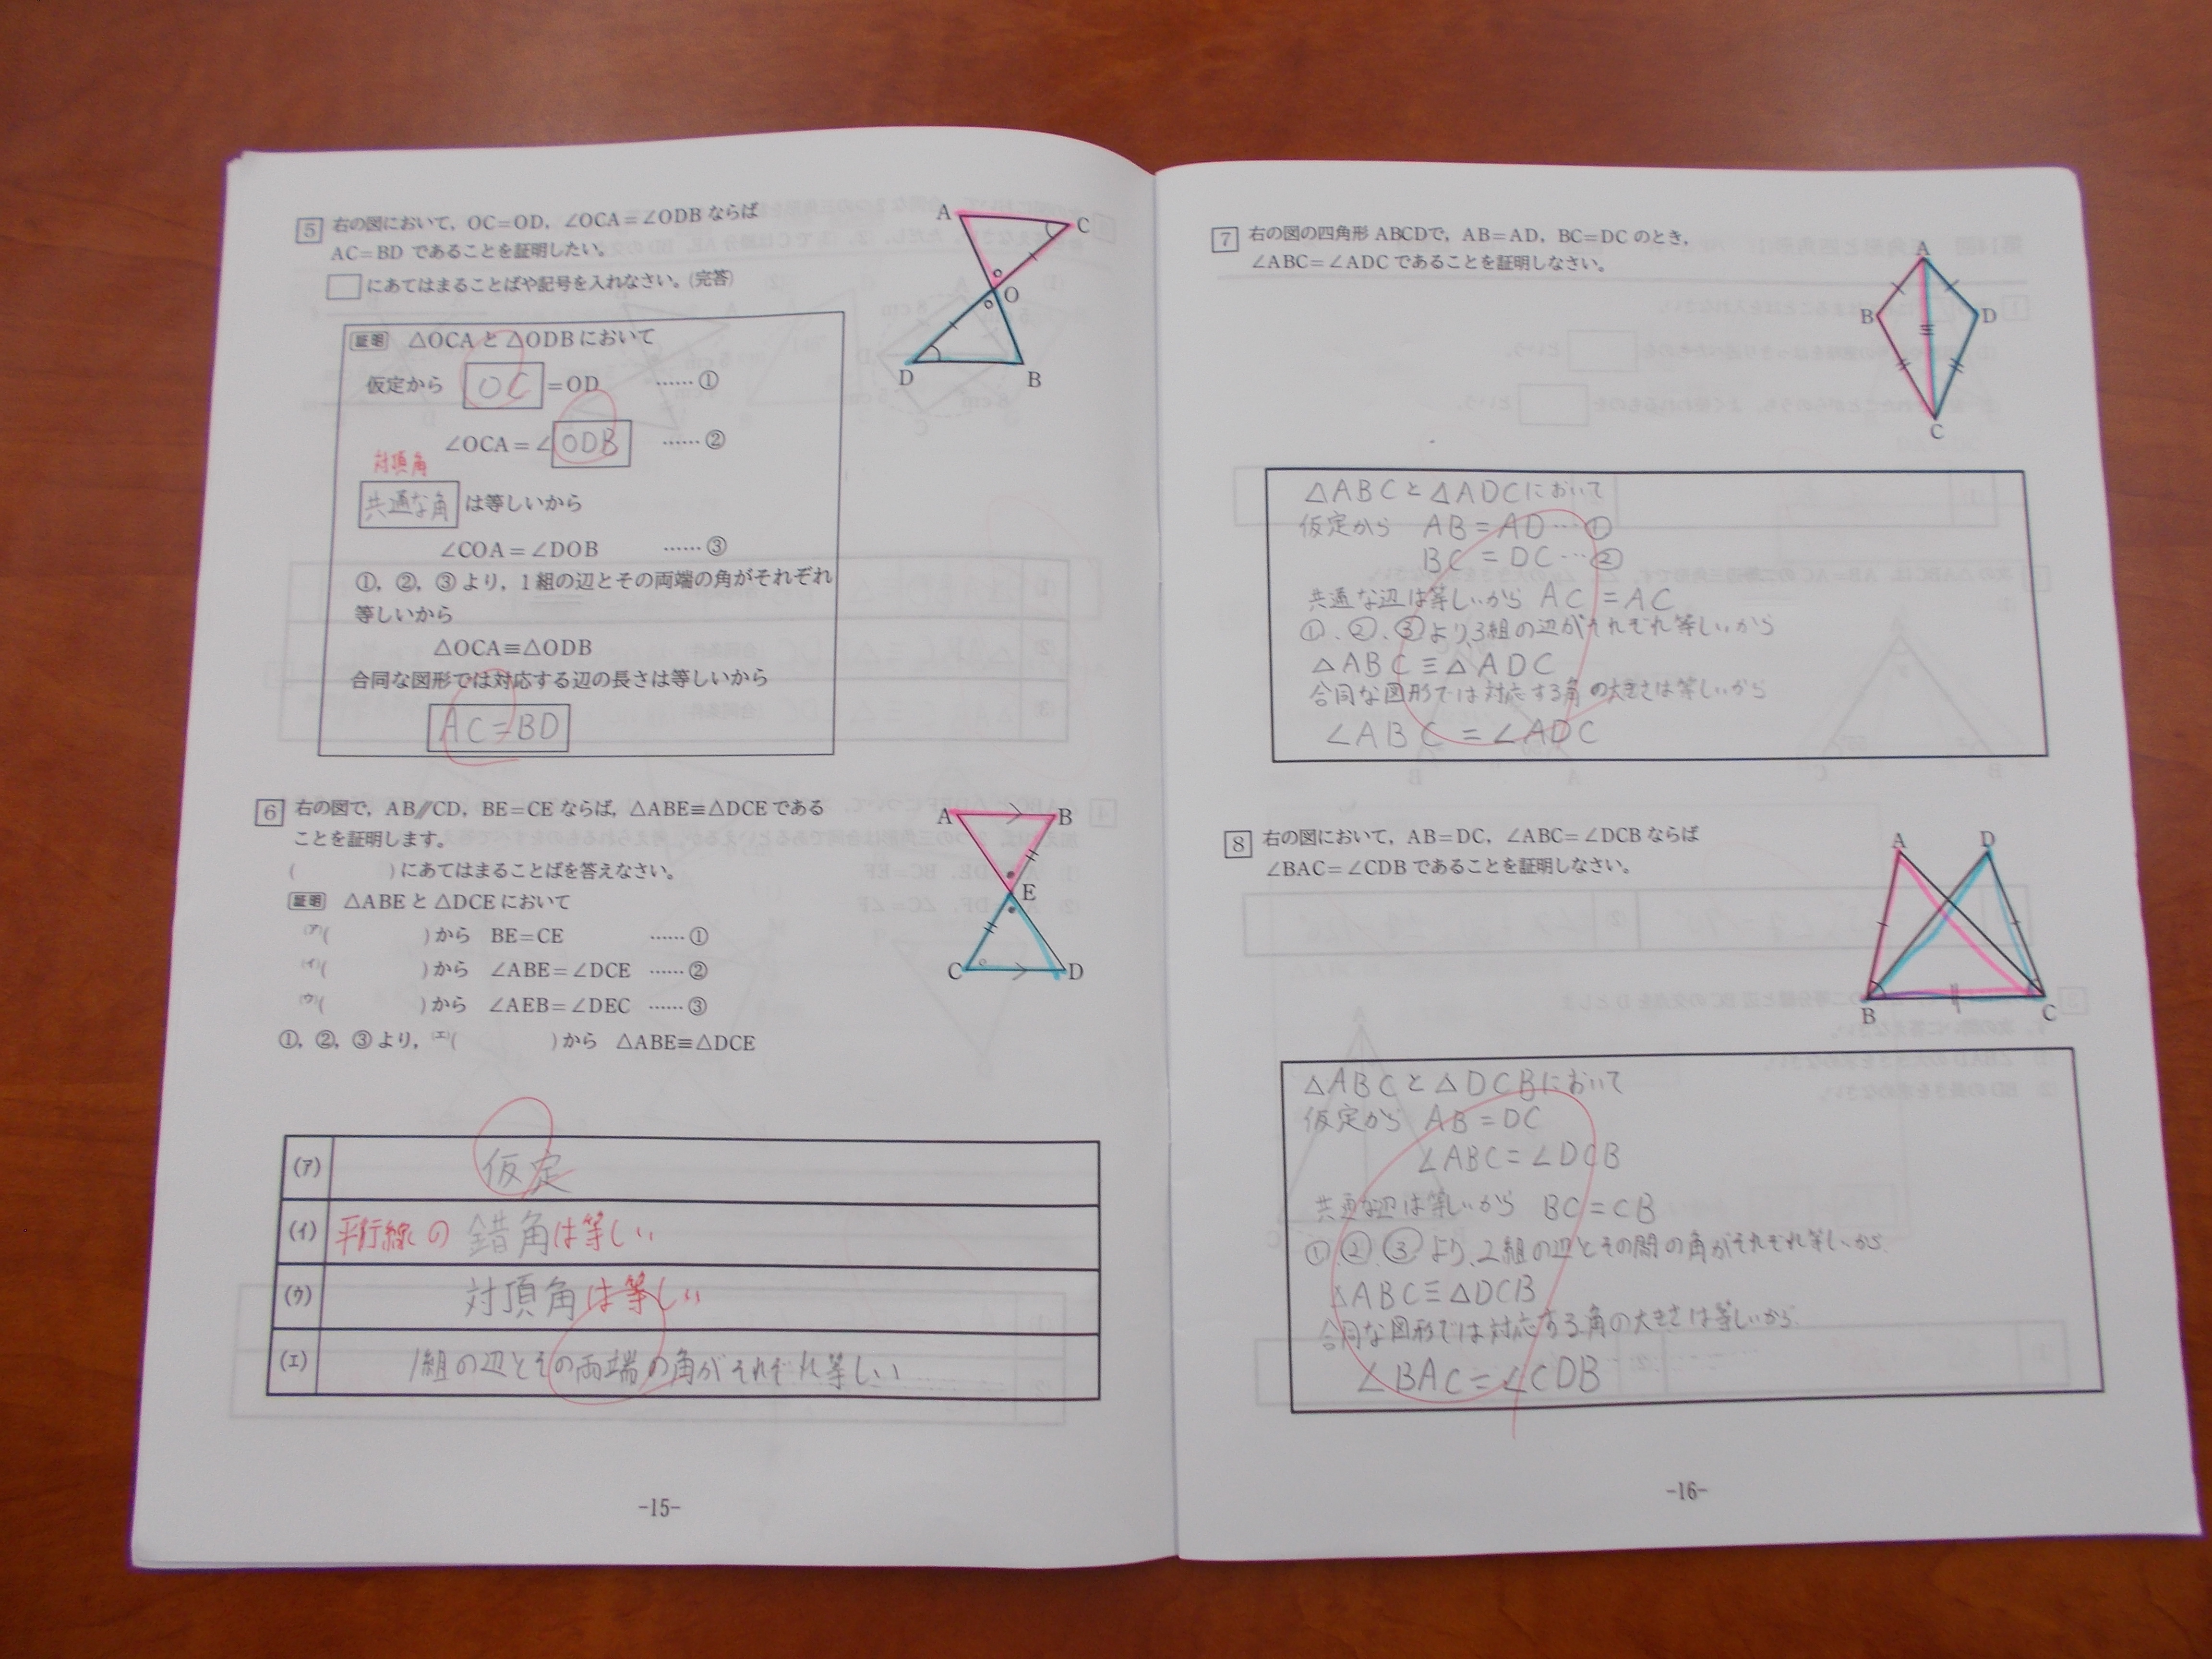 5 右の図において, OC=OD, ∠OCA=∠ODB ならば
AC=BD であることを証明したい。
□にあてはまることばや記号を入れなさい。(完答)
A
C
O
D
B
証明 △OCA と △ODB において
仮定から OC =OD ……①
∠OCA=∠ ODB ……②
対頂角
共通な角 は等しいから
∠COA=∠DOB ……③
①, ②, ③ より, 1 組の辺とその両端の角がそれぞれ
等しいから
△OCA≡△ODB
合同な図形では対応する辺の長さは等しいから
AC=BD
6 右の図で, AB∥CD, BE=CE ならば, △ABE≡△DCE である
ことを証明します。
( )にあてはまることばを答えなさい。
A
B
E
C
D
証明 △ABE と △DCE において
(ア)( )から BE=CE ……①
(イ)( )から ∠ABE=∠DCE ……②
(ウ)( )から ∠AEB=∠DEC ……③
①, ②, ③ より, (エ)( )から △ABE≡△DCE
(ア) 仮定
(イ) 平行線の 錯角は等しい
(ウ) 対頂角は等しい
(エ) 1組の辺とその両端の角がそれぞれ等しい
-15-
7 右の図の四角形 ABCDで, AB=AD, BC=DC のとき,
∠ABC=∠ADC であることを証明しなさい。
A
B
D
C
△ABCと△ADCにおいて
仮定から AB=AD…①
BC=DC…②
共通な辺は等しいから AC=AC
①、②、③より、3組の辺がそれぞれ等しいから
△ABC≡△ADC
合同な図形では対応する角の大きさは等しいから
∠ABC=∠ADC
8 右の図において, AB=DC, ∠ABC=∠DCB ならば
∠BAC=∠CDB であることを証明しなさい。
A
D
B
C
△ABCと△DCBにおいて
仮定から AB=DC
∠ABC=∠DCB
共通な辺は等しいから BC=CB
①、②、③より、2組の辺とその間の角がそれぞれ等しいから
△ABC≡△DCB
合同な図形では対応する角の大きさは等しいから
∠BAC=∠CDB
-16-